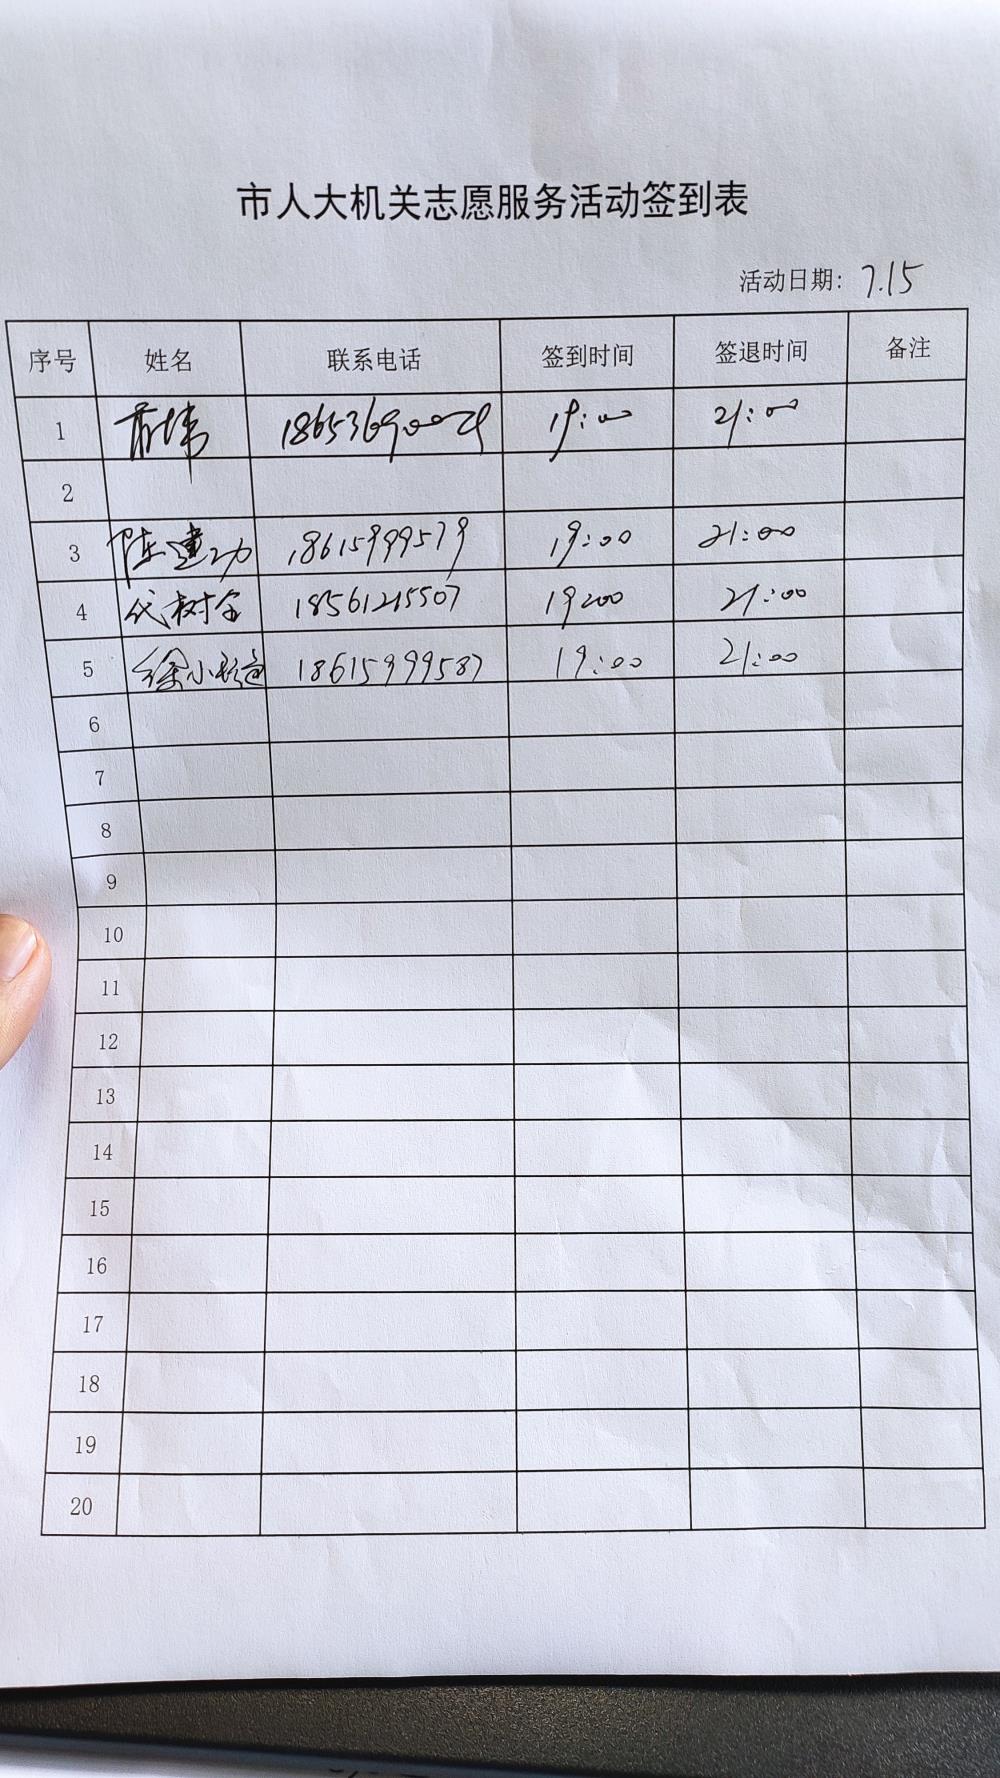 市人大机关志愿服务活动签到表
活动日期: 7.15
序号 姓名 联系电话 签到时间 签退时间 备注
1 19:00 21:00
2
3 陈建功 18615999579 19:00 21:00
4 代树全 18561215507 19:00 21:00
5 徐小 18615999587 19:00 21:00
6
7
8
9
10
11
12
13
14
15
16
17
18
19
20